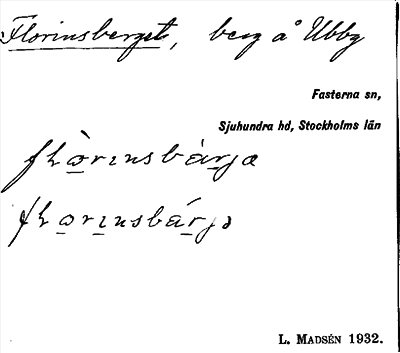 Florinsberget, berg å Ubby
Fasterna sn,
Sjuhundra hd, Stockholms län
L. MADSÉN 1932.